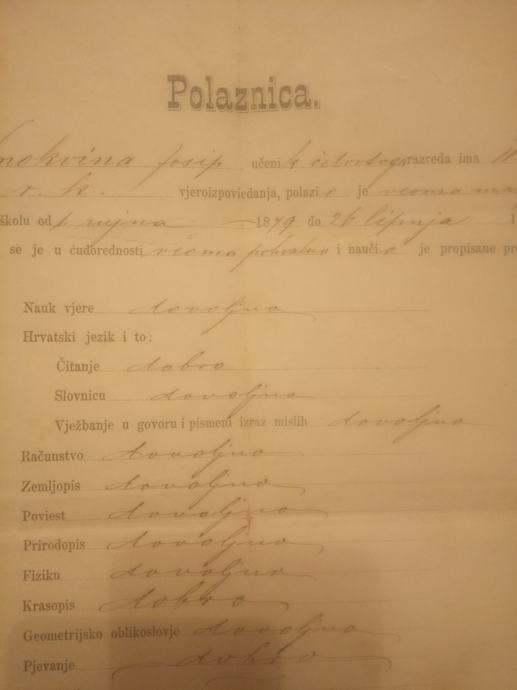 Polaznica.
Josip učenik četvrtog razreda ima 11
r. k. vjeroizpoviedanja, polazio je veoma
školu od 1. rujna 1879 do 26 lipnja
se je u ćudorednosti veoma pohvalno i naučio je propisane
Nauk vjere dovoljno
Hrvatski jezik i to:
Čitanje dobro
Slovnicu dovoljno
Vježbanje u govoru i pismeni izraz mislih dovoljno
Računstvo dovoljno
Zemljopis dovoljno
Poviest dovoljno
Prirodopis dovoljno
Fiziku dovoljno
Krasopis dobro
Geometrijsko oblikoslovje dovoljno
Pjevanje dobro